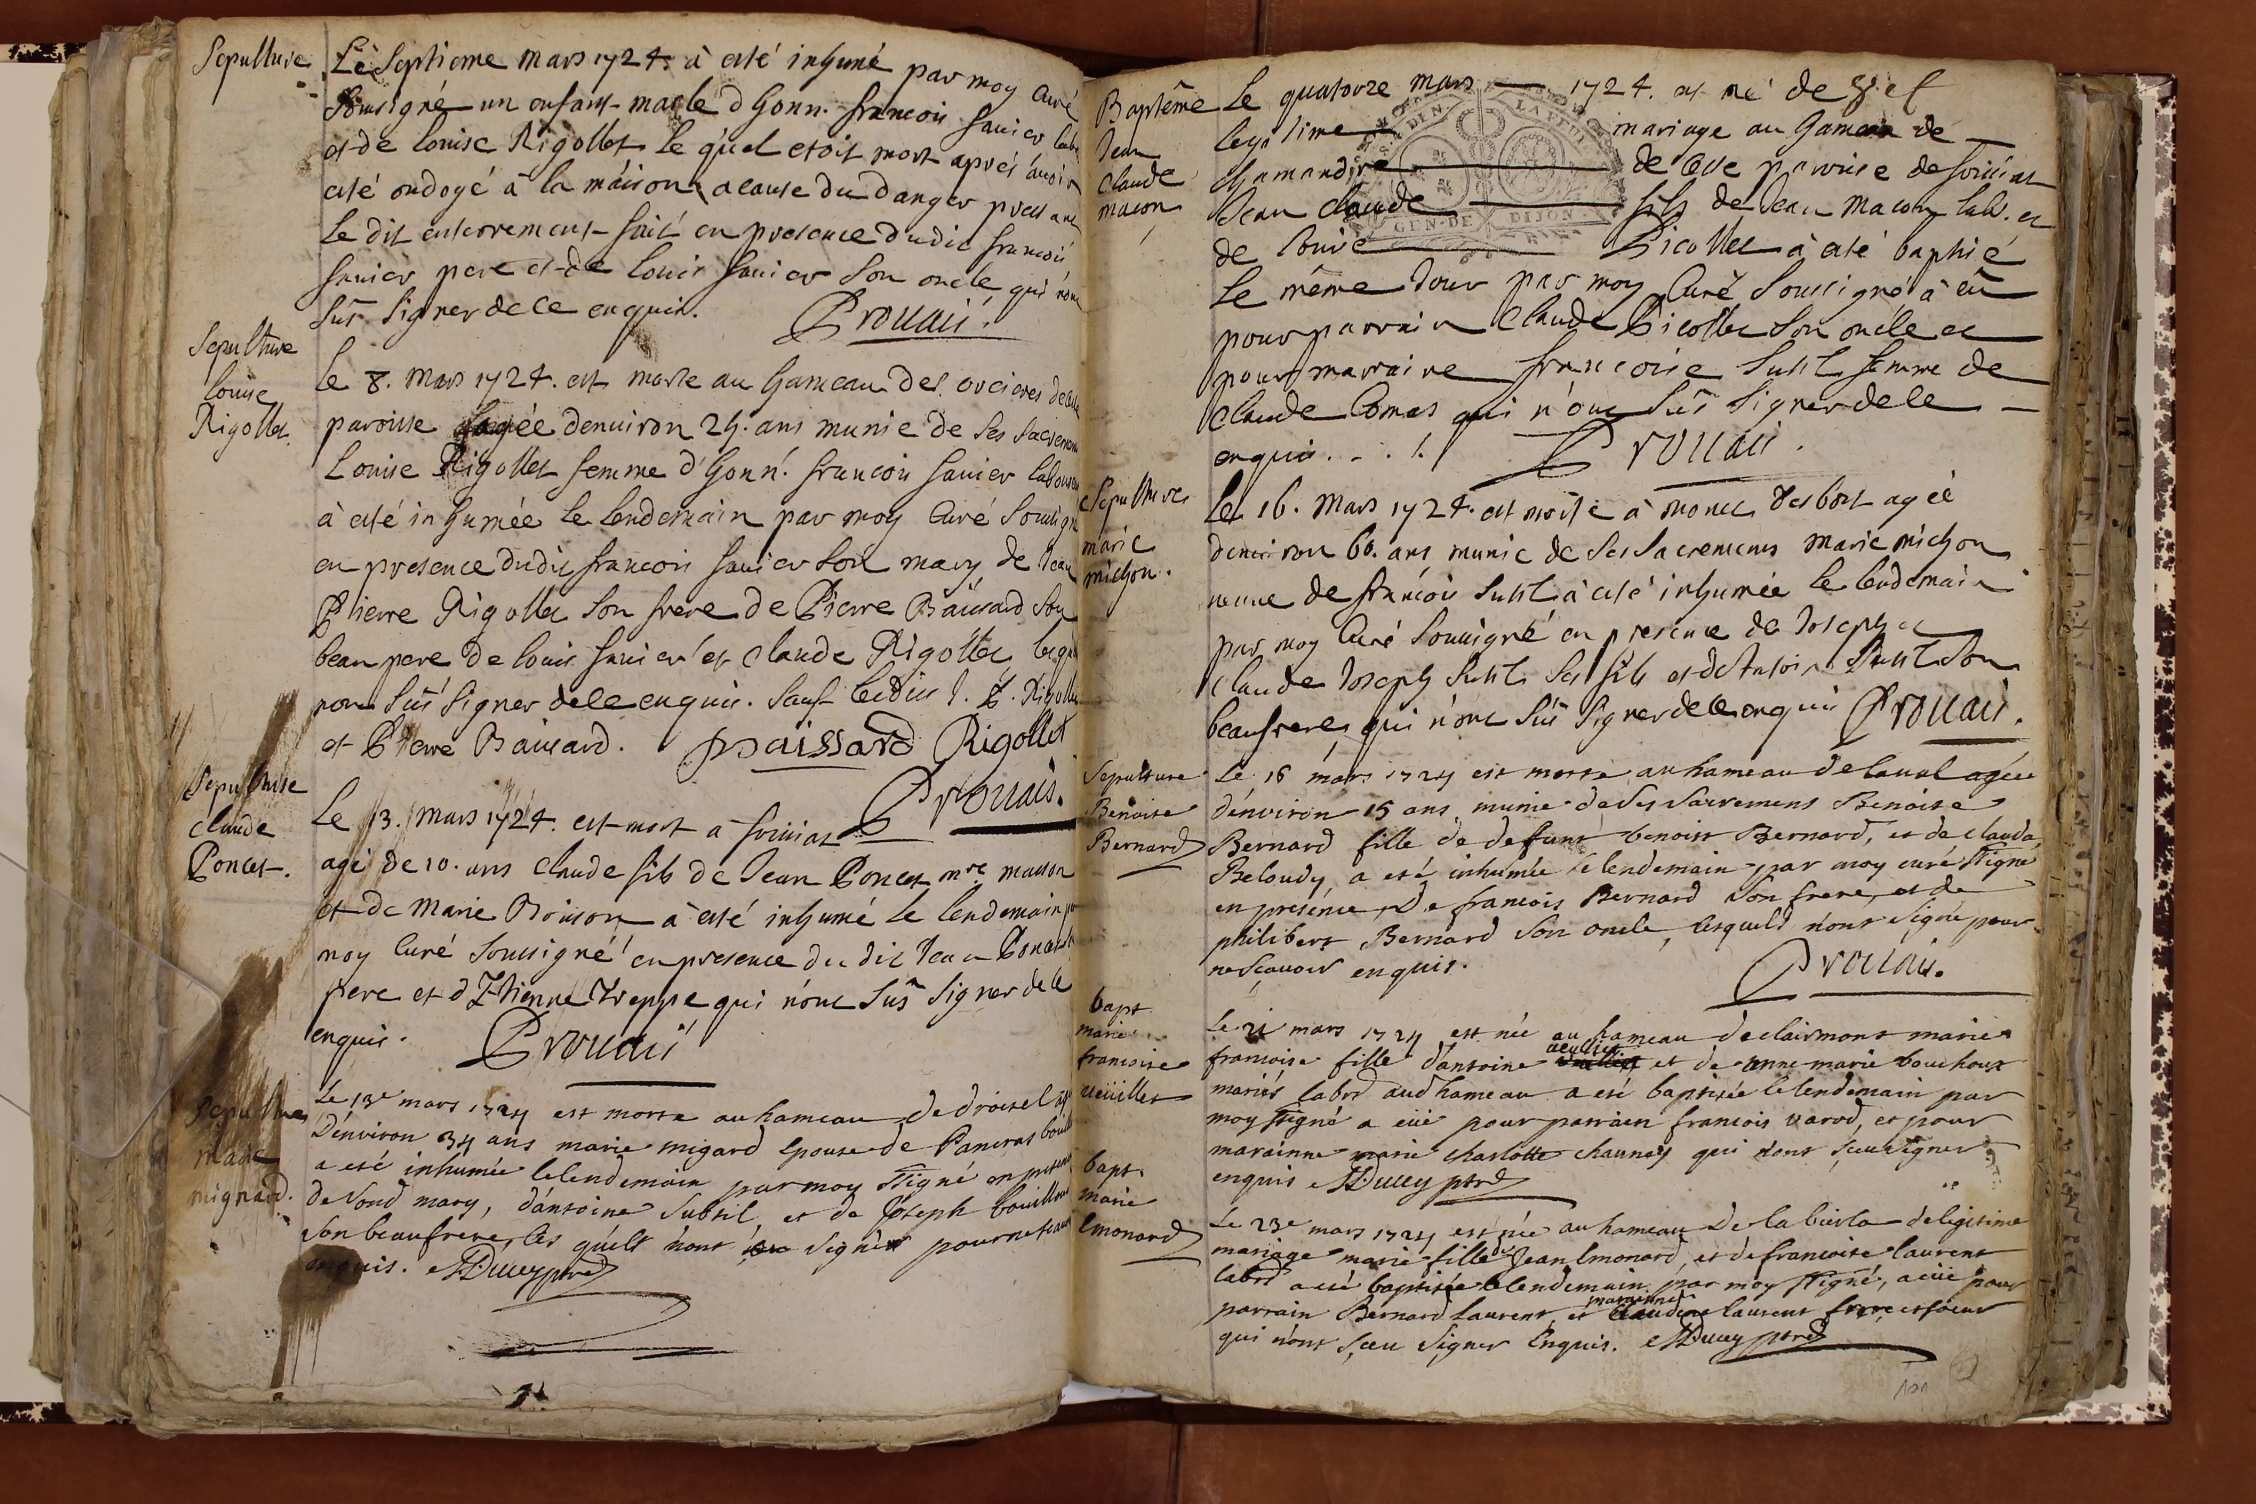 Sepulture
Le Septieme mars 1724. à esté inhumé par moy Curé
soussigné un enfant masle d'honn. francois Janier lab
et de louise Rigollet le quel etoit mort aprés avoir
esté ondoyé à la maison acause du danger pressant
le dit enterrement fait en presence dudit francois
Janier pere et de louis Janier son oncle qui n'ont
sus signer de ce enquis. Provais.
Sepulture
louise
Rigollet.
le 8. mars 1724. est morte au hameau des orcieres de cette
paroisse agée denuiron 25. ans munie de ses sacremens
Louise Rigollet femme d'honn. francois Janier laboureur
à esté inhumée le lendemain par moy Curé soussigné
en presence dudit francois Janier son mary de Jean
Pierre Rigollet son frere de Pierre Baissard son
beau pere de louis Janier et claude Rigollet lesquels
nont sus signer de ce enquis. sauf lesdits J. P. Rigollet
et Pierre Baissard. paissard Rigollet
Provais.
Sepulture
claude
Poncet.
Le 13. mars 1724. est mort a
agé de 10. ans claude fils de Jean Poncet mre masson
et de Marie Boisson à esté inhumé le lendemain par
moy Curé soussigné en presence du dit Jean Poncet
pere et d'Etienne Treppe qui n'ont sus signer de ce
enquis. Provais
Sepulture
marie
mignard.
Le 13e mars 1724 est morte au hameau de
Dénviron 34 ans marie migard epouse de Pancras
a esté inhumée le lendemain par moy ssigné en presence
de sond mary, d'antoine subtil, et de Joseph bouillon
son beaufrere, les quels n'ont signé pour ne scavoir
enquis. Ducy ptre
Baptême
Jean
claude
macon
Le quatorze mars 1724. est né de
legitime mariage au hameau de
chamandre de cette paroisse de
Jean claude fils de Jean Macon lab. et
de louise Picollet à esté baptisé
le même Jour par moy Curé soussigné à eü
pour parrain Claude Picollet son oncle et
pour marraine francoise Subtil femme de
claude Comas qui n'ont sus signer de ce
enquis. Provais.
GEN. DE DIJON.
Sepulture
marie
michon.
Le 16. mars 1724. est morte à agée
denuiron 60. ans munie de ses sacremens marie michon
veuve de francois Subtil à esté inhumée le lendemain
par moy Curé soussigné en presence de Joseph et
claude Joseph Subtil ses fils et d'Antoine Subtil son
beaufrere, qui n'ont sus signer de ce enquis Provais.
Sepulture
Benoite
Bernard
Le 16 mars 1724 est morte au hameau de laval agée
dénviron 15 ans munie de ses sacremens Benoite
Bernard fille de defunt benoist Bernard, et de clauda
Beloudy, a esté inhumée le lendemain par moy curé ssigné
en presence de francois Bernard son frere, et de
philibert Bernard son oncle, lesquels n'ont signé pour
ne scavoir enquis.
Provais.
bapt
marie
francoise
Le 21 mars 1724 est née au hameau de clairmont marie
francoise fille d'antoine et de anne marie bouchoux
mariés labrs aud hameau a esté baptisée le lendemain par
moy ssigné a eüe pour parrain francois varod, et pour
marainne marie charlotte chaunay qui n'ont sceu signer
enquis Ducy ptre
bapt
marie
Emonard
Le 23e mars 1724 est née au hameau de la de legitime
mariage marie fille de Jean Emonard, et de francoise laurent
labrs a esté baptisée le lendemain par moy ssigné, a eüe pour
parrain Bernard laurent, et marainne Claudine laurent frere et soeur
qui n'ont sceu signer Enquis. Ducy ptre
121